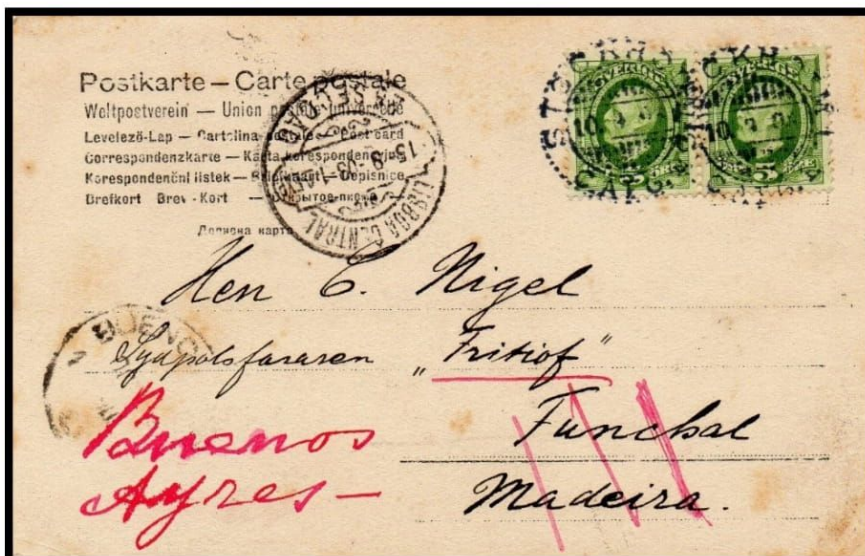 Postkarte — Carte postale
Weltpostverein — Union postale universelle
Levelező-Lap — Cartolina postale — Post card
Correspondenzkarte — Karta korespondencyjna
Korespondenční listek — Briefkaart — Dopisnice
Brefkort Brev-Kort — Открытое письмо
Дописна карта
LISBOA CENTRAL
STOCKHOLM
SVERIGE
5
Herr C. Nigel
Sydpolsfararen "Fritiof"
BUENOS
Buenos
Ayres —
Funchal
Madeira.